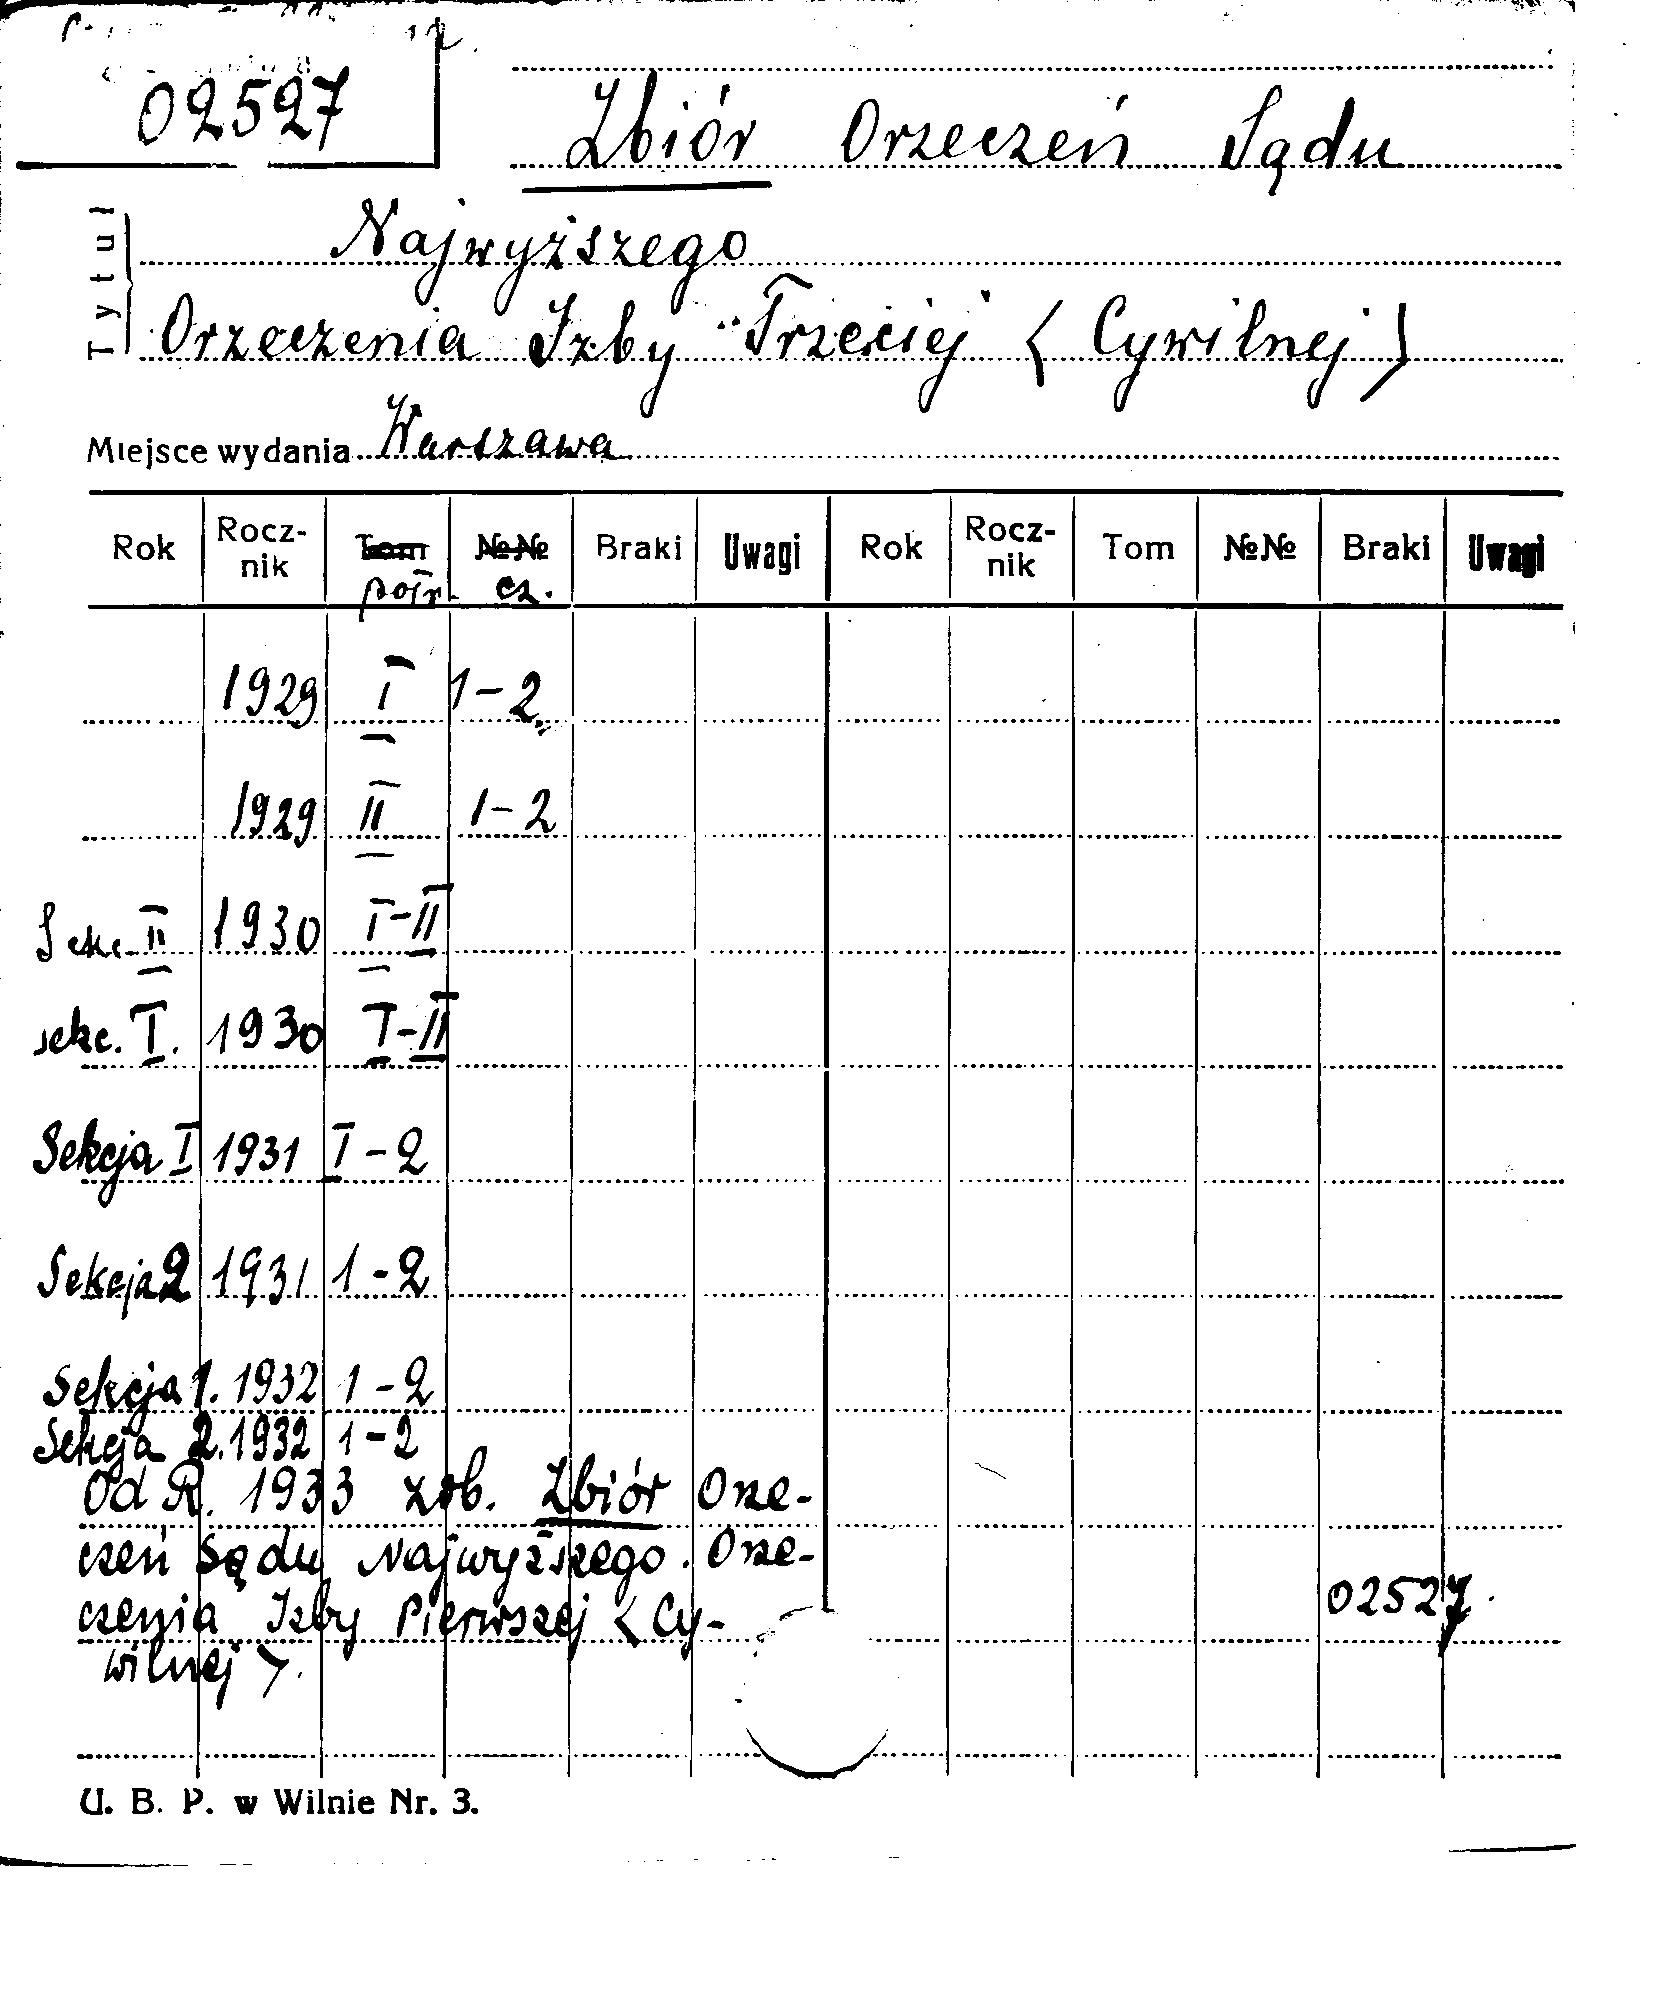 02527
Zbiór Orzeczeń Sądu
Najwyższego
Tytuł
Orzeczenia Izby Trzeciej (Cywilnej)
Miejsce wydania Warszawa
Rok Rocz-nik Tom №№ Braki Uwagi Rok Rocz-nik Tom №№ Braki Uwagi
półr. cz.
1929 I 1-2
1929 II 1-2
Sekc. II 1930 I-II
sekc. I. 1930 I-II
Sekcja I 1931 I-2
Sekcja 2 1931 1-2
Sekcja 1. 1932 1-2
Sekcja 2. 1932 1-2
Od R. 1933 zob. Zbiór Orze-
czeń Sądu Najwyższego. Orze-
czenia Izby Pierwszej (Cy-
wilnej).
02527.
U. B. P. w Wilnie Nr. 3.